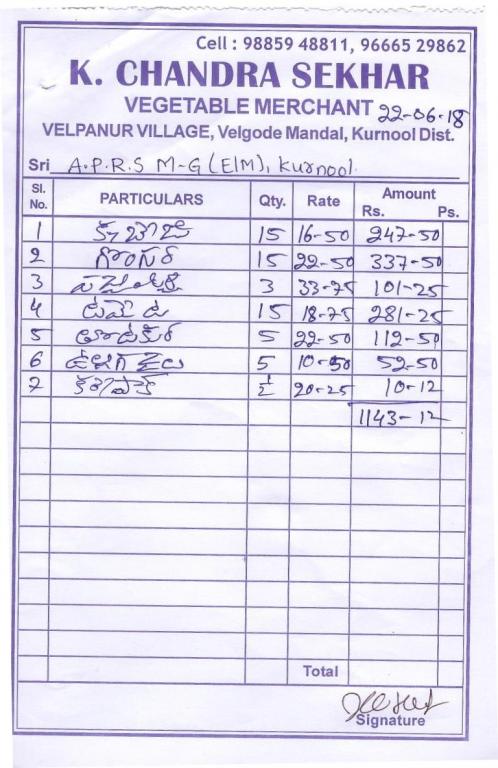 Cell : 98859 48811, 96665 29862
K. CHANDRA SEKHAR
VEGETABLE MERCHANT 22-06-18
VELPANUR VILLAGE, Velgode Mandal, Kurnool Dist.
Sri A.P.R.S M-G (E/M), Kurnool.
Sl. No. PARTICULARS Qty. Rate Amount Rs. Ps.
1 క్యాబేజి 15 16-50 247-50
2 గోంగూర 15 22-50 337-50
3 పచ్చిమిర్చి 3 33-75 101-25
4 టమోట 15 18-75 281-25
5 తోటకూర 5 22-50 112-50
6 ఉల్లిగడ్డలు 5 10-50 52-50
7 కరివేపాకు ½ 20-25 10-12
1143-12
Total
Signature